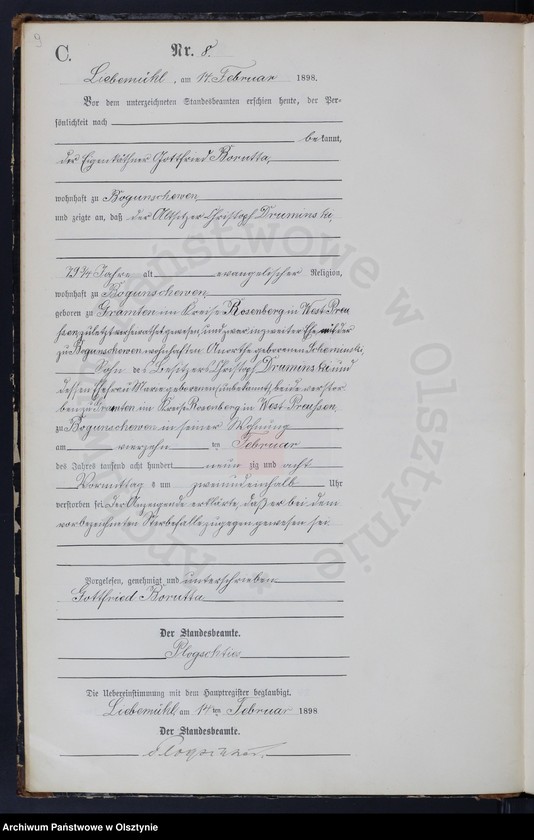 9
C. Nr. 8.
Liebemühl, am 14 Februar 1898.
Vor dem unterzeichneten Standesbeamten erschien heute, der Per-
sönlichkeit nach
bekannt,
der Eigenkäthner Gottfried Borutta,
wohnhaft zu Bogunschewen
und zeigte an, daß der Altsitzer Christoph Druminski,
79 3/4 Jahre alt evangelischer Religion,
wohnhaft zu Bogunschewen,
geboren zu Gramten im Kreise Rosenberg in West Preu
ssen zuletzt verheirathet gewesen, und zwar in zweiter Ehe mit der
zu Bogunschewen wohnhaften Anorthe geborenen
Sohn des Besitzers Christoph Druminski und
dessen Ehefrau Marie geborenen (unbekannt), beide verstor
ben zu Gramten im Kreise Rosenberg in West Preussen,
zu Bogunschewen in seiner Wohnung
am vierzehn ten Februar
des Jahres tausend acht hundert neun zig und acht
Vormittag s um zweiundeinhalb Uhr
verstorben sei. Der Anzeigende erklärte, daß er bei dem
vorbezeichneten Sterbefalle zugegen gewesen sei.
Vorgelesen, genehmigt und unterschrieben
Gottfried Borutta
Der Standesbeamte.
Plogschties
Die Uebereinstimmung mit dem Hauptregister beglaubigt.
Liebemühl, am 14 ten Februar 1898
Der Standesbeamte.
Archiwum Państwowe w Olsztynie
Archiwum Państwowe w Olsztynie